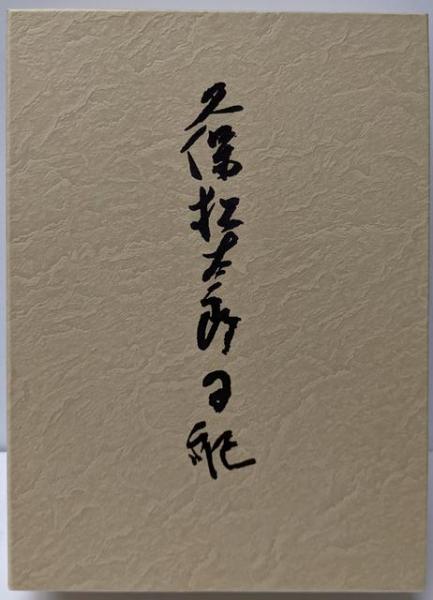 久保松太郎日記